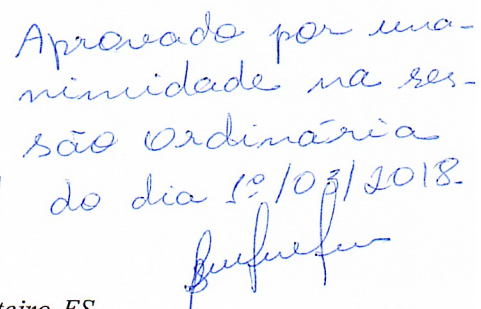 Aprovado por una-
nimidade na ses-
são Ordinária
do dia 1º/03/2018.
teiro-ES